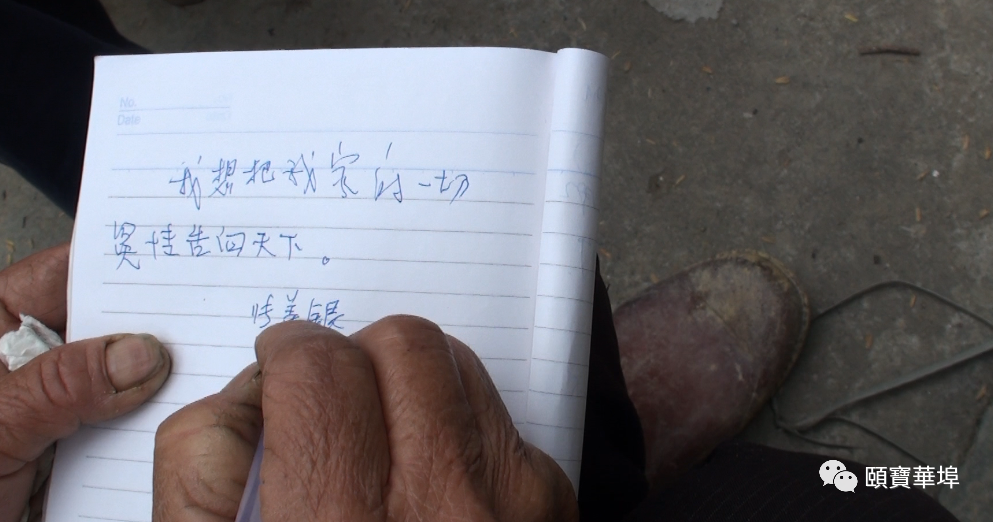 No.
Date
我想把我家的一切
冤情告向天下。
银
頤寶華埠